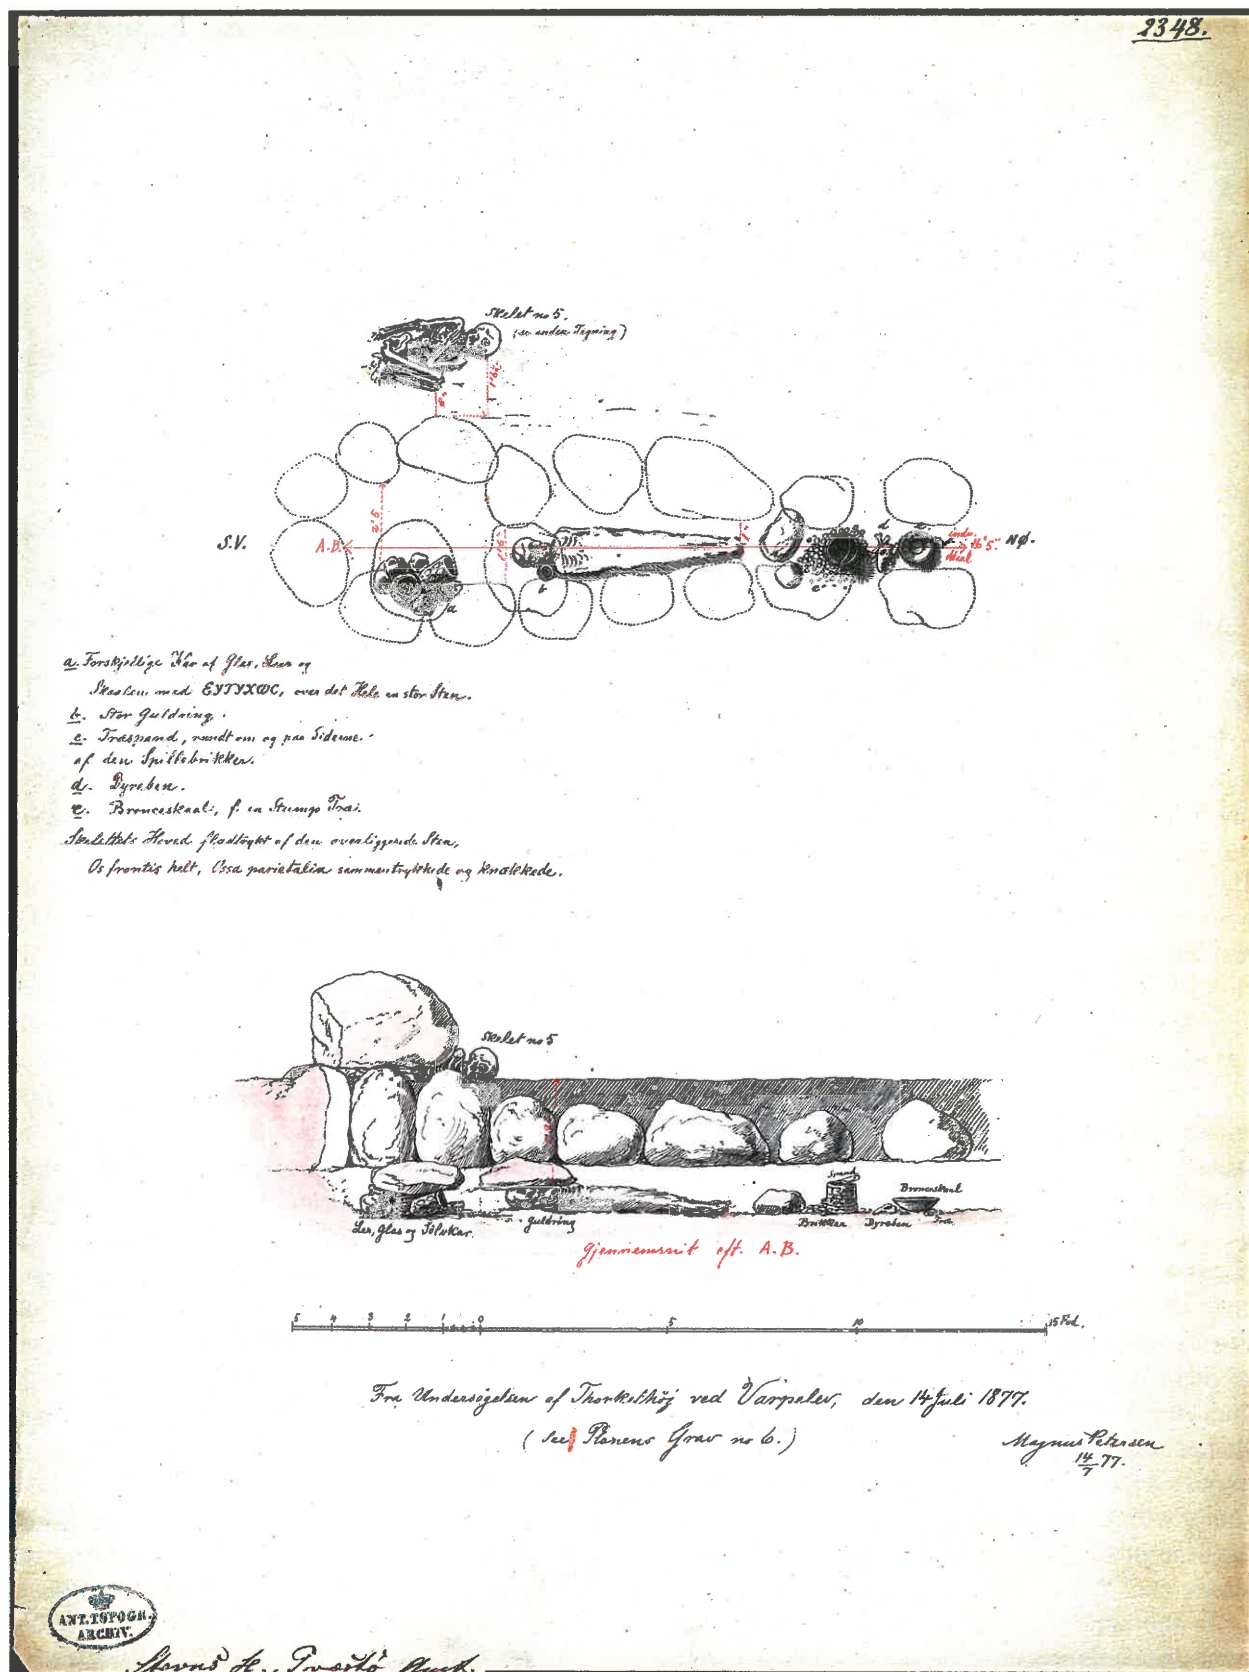 2348.
Skelet no 5.
(se anden Tegning)
8"
S.V.
A.B.
2' 9"
1'
a
b
c
d
e
indv.
16' 5"
Maal
NØ.
a. Forskjellige Kar af Glas, Leer og
Skaalen med ΕΥΤΥΧѠС, over det Hele en stor Sten.
b. Stor Guldring.
c. Træspand, rundt om og paa Siderne
af den Spillebrikker.
d. Dyreben.
e. Bronceskaal, f. en Stump Træ.
Skelettets Hoved fladtrykt af den overliggende Sten,
Os frontis helt, Ossa parietalia sammentrykkede og knækkede.
Skelet no 5
Spand
Bronceskaal
Ler, Glas og Sölvkar.
Guldring
Brikker
Dyreben
Træ
Gjennemsnit eft. A.B.
5 4 3 2 1 0 5 10 15 Fod.
Fra Undersøgelsen af Thorkelshöj ved Varpelev, den 14 Juli 1877.
(See Planens Grav no 6.)
Magnus Petersen
14/7 77.
ANT. TOPOGR.
ARCHIV.
Stevns H. Præstö Amt.